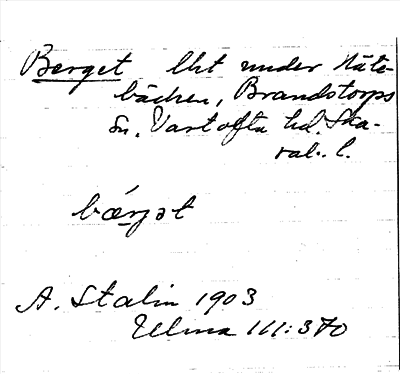 Berget lht under Näte-
bäcken, Brandstorps
sn. Vartofta hd. Ska-
rab. l.
bǽrjət
A. Stalin 1903
Ulma 111:370